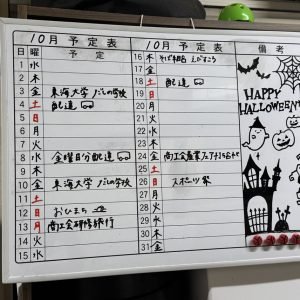 10月 予定表
日 曜 予定
1 水
2 木
3 金 東海大学
4 土 配達
5 日
6 月
7 火
8 水 金曜日分配達
9 木
10 金 東海大学
11 土
12 日 おひまち
13 月 商工会研修旅行
14 火
15 水
10月 予定表
16 木 えびすこう
17 金
18 土 配達
19 日
20 月
21 火
22 水
23 木
24 金 商工会産業フェア
25 土
26 日 スポーツ祭
27 月
28 火
29 水
30 木
31 金
備考
HAPPY
HALLOWEEN!